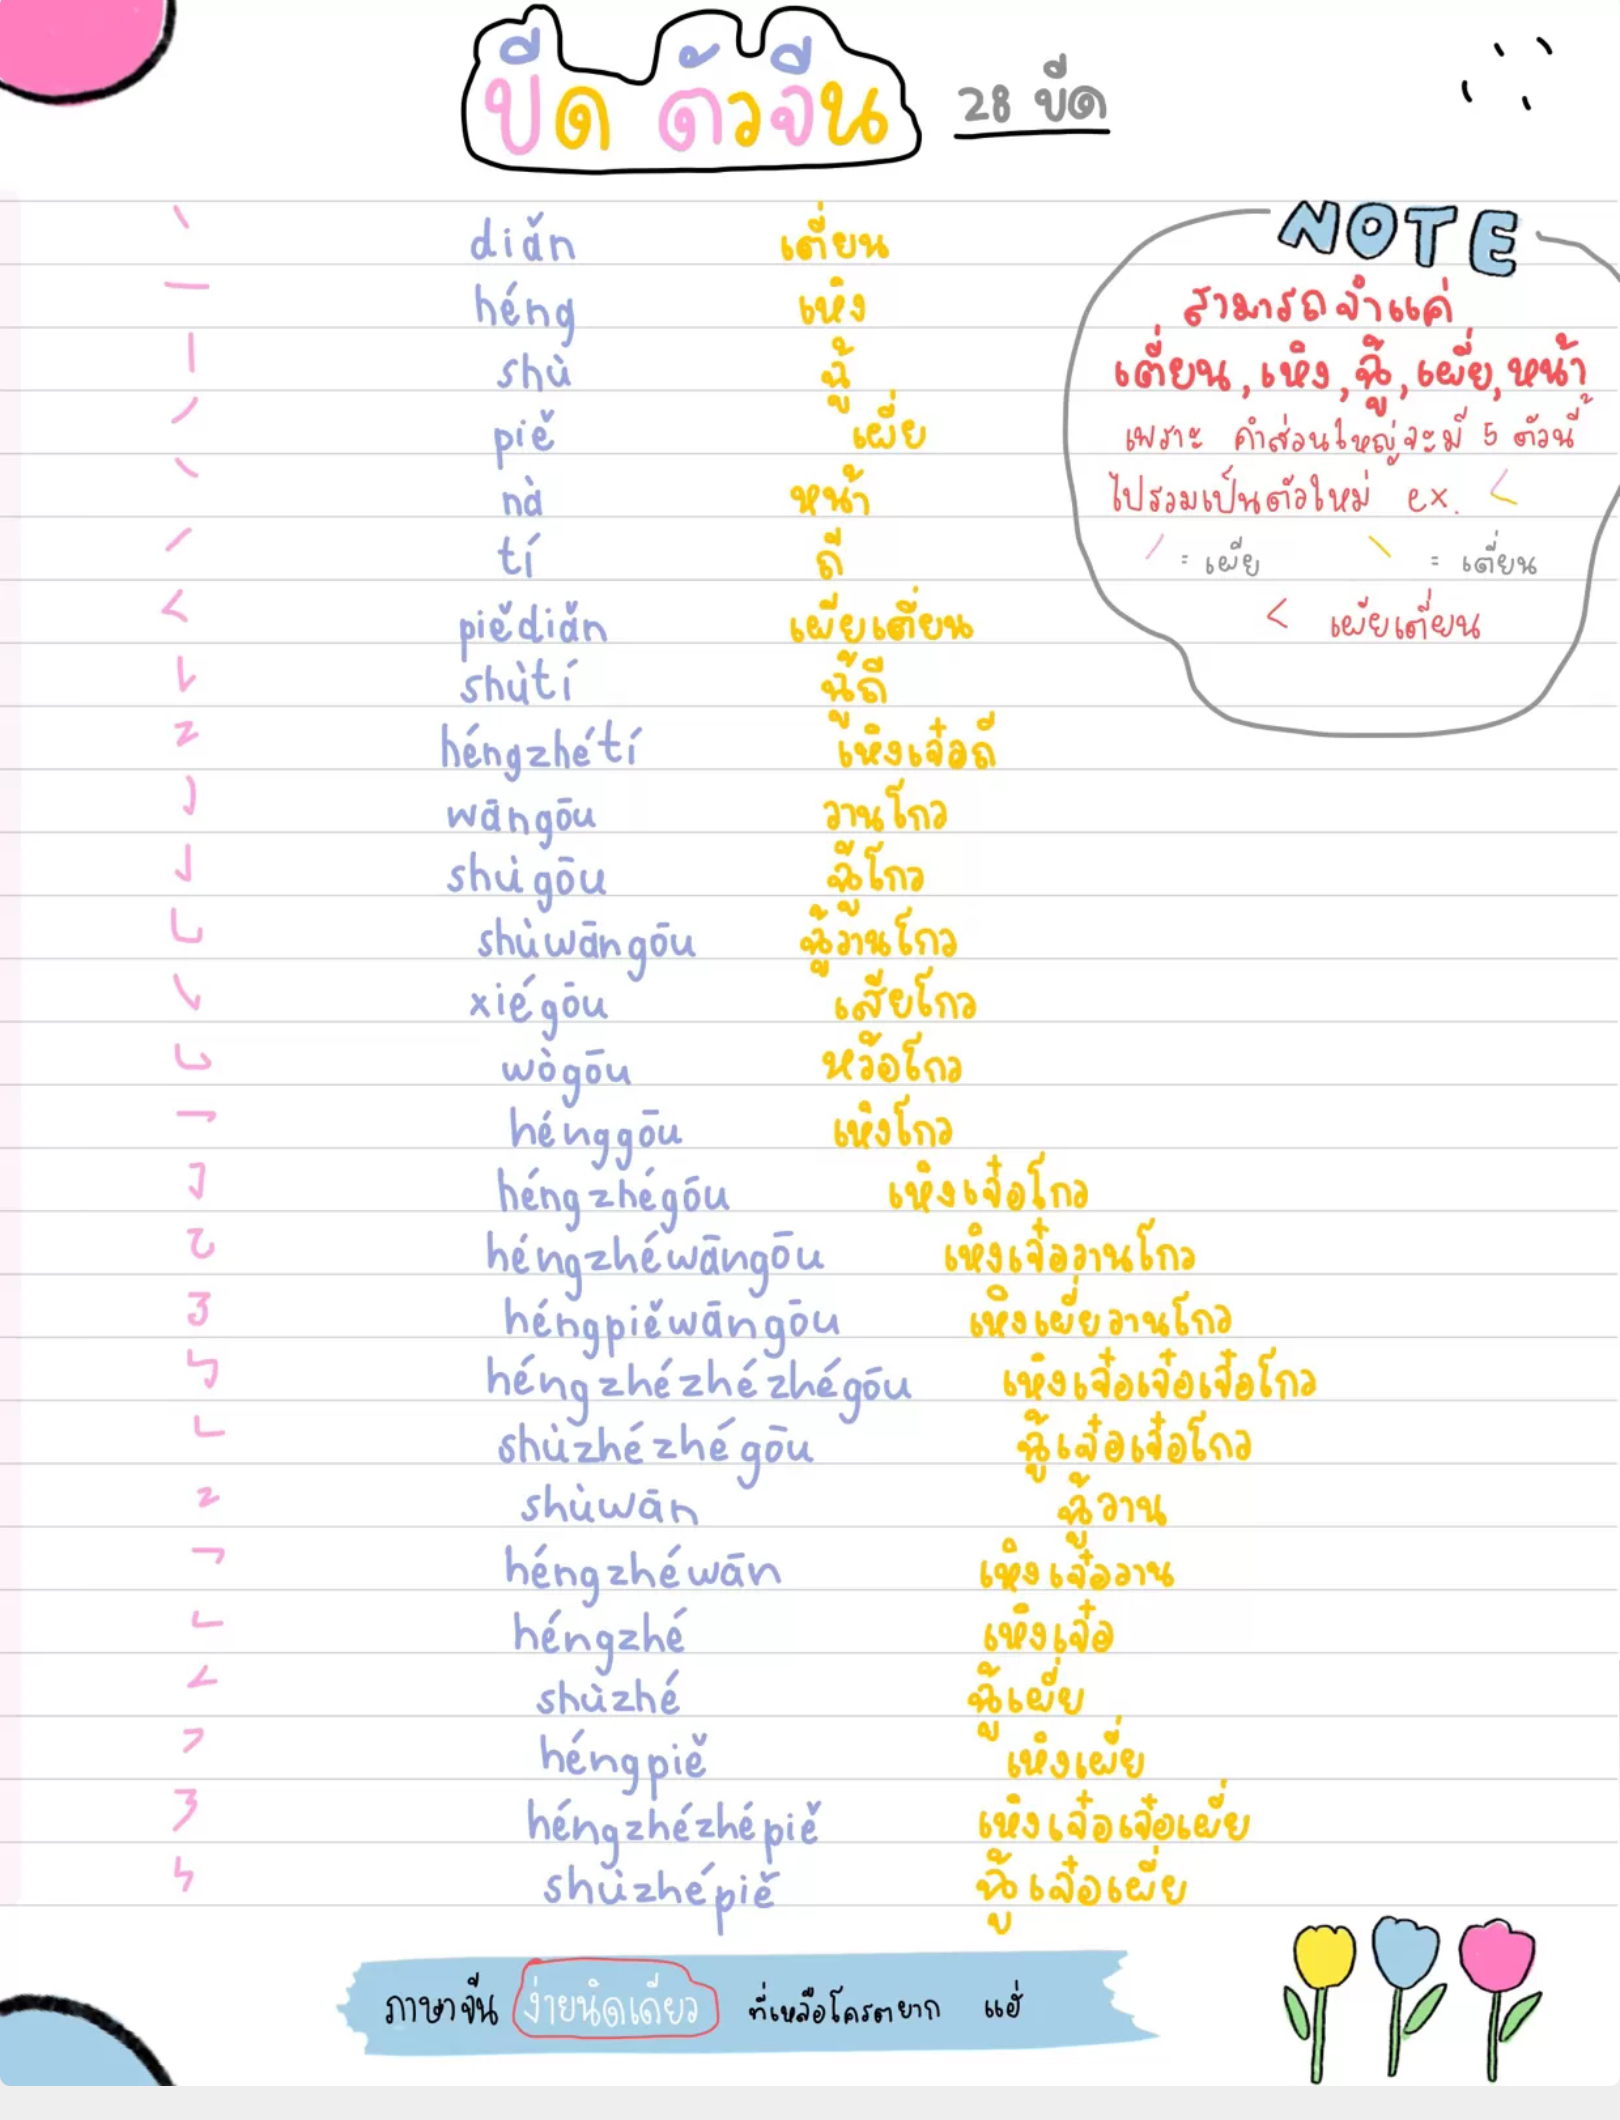 ขีด ตัวจีน 28 ขีด
diǎn เตี่ยน
héng เหิง
shù ฉู้
piě เผี่ย
nà หน้า
tí ถี
piědiǎn เผี่ยเตี่ยน
shùtí ฉู้ถี
héngzhétí เหิงเจ๋อถี
wāngōu วานโกว
shùgōu ฉู้โกว
shùwāngōu ฉู้วานโกว
xiégōu เสียโกว
wògōu หว้อโกว
hénggōu เหิงโกว
héngzhégōu เหิงเจ๋อโกว
héngzhéwāngōu เหิงเจ๋อวานโกว
héngpiěwāngōu เหิงเผี่ยวานโกว
héngzhézhézhégōu เหิงเจ๋อเจ๋อเจ๋อโกว
shùzhézhégōu ฉู้เจ๋อเจ๋อโกว
shùwān ฉู้วาน
héngzhéwān เหิงเจ๋อวาน
héngzhé เหิงเจ๋อ
shùzhé ฉู้เผี่ย
héngpiě เหิงเผี่ย
héngzhézhépiě เหิงเจ๋อเจ๋อเผี่ย
shùzhépiě ฉู้เจ๋อเผี่ย
NOTE
สามารถจำแค่
เตี่ยน, เหิง, ฉู้, เผี่ย, หน้า
เพราะ คำส่วนใหญ่จะมี 5 ตัวนี้
ไปรวมเป็นตัวใหม่ ex. <
/ = เผี่ย \ = เตี่ยน
< เผี่ยเตี่ยน
ภาษาจีน ง่ายนิดเดียว ที่เหลือโครตยาก แฮ่